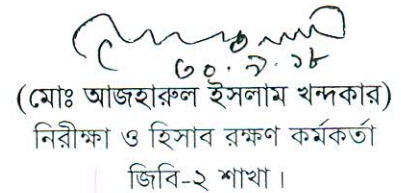 ৩০.৯.১৮
(মোঃ আজহারুল ইসলাম খন্দকার)
নিরীক্ষা ও হিসাব রক্ষণ কর্মকর্তা
জিবি-২ শাখা।